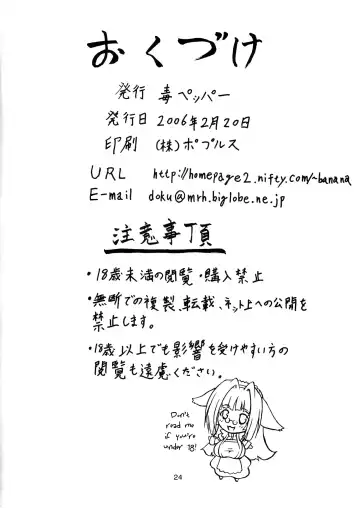 おくづけ
発行 毒ペッパー
発行日 2006年2月20日
印刷 (株)ポプルス
URL http://homepage2.nifty.com/~banana
E-mail doku@mrh.biglobe.ne.jp
注意事項
・18歳未満の閲覧・購入禁止
・無断での複製、転載、ネット上への公開を
禁止します。
・18歳以上でも影響を受けやすい方の
閲覧も遠慮ください。
Don't
read me
if you're
under 18!
24